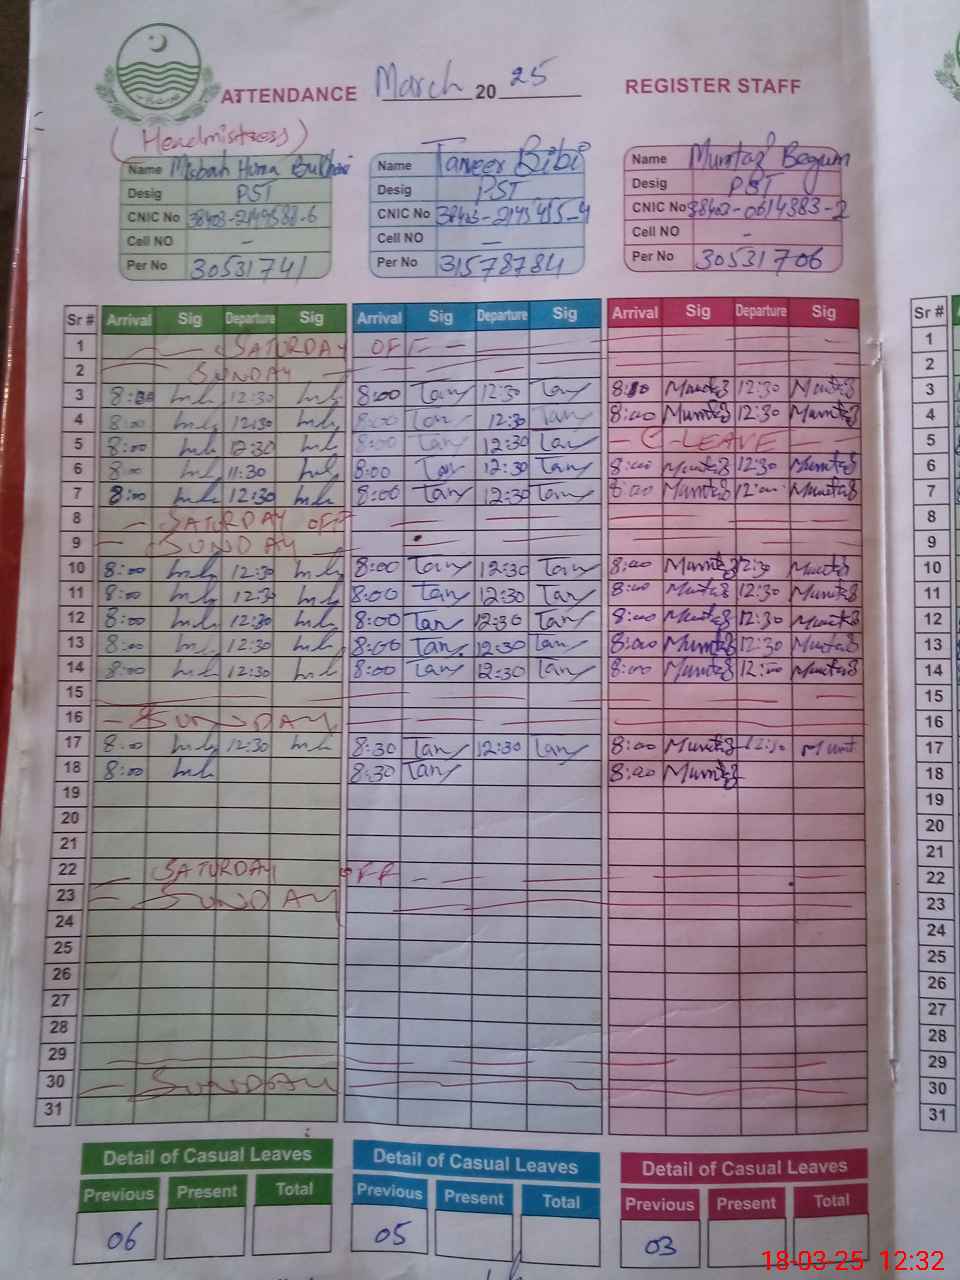 ATTENDANCE March 2025 REGISTER STAFF
(Headmistress)
Name Misbah Huma Bukhari Name Tanveer Bibi Name Mumtaz Begum
Desig PST Desig PST Desig PST
CNIC No CNIC No CNIC No 38402-0614383-2
Cell NO - Cell NO - Cell NO -
Per No 30531741 Per No 31578784 Per No 30531706
Sr # Arrival Sig Departure Sig Arrival Sig Departure Sig Arrival Sig Departure Sig Sr #
1 SATURDAY OFF 1
2 SUNDAY 2
3 8:00 12:30 8:00 Tan 12:30 Tan 8:00 Mumtaz 12:30 Mumtaz 3
4 8:00 12:30 8:00 Tan 12:30 Tan 8:00 Mumtaz 12:30 Mumtaz 4
5 8:00 12:30 8:00 Tan 12:30 Tan - C-LEAVE 5
6 8:00 11:30 8:00 Tan 12:30 Tan 8:00 Mumtaz 12:30 Mumtaz 6
7 8:00 12:30 8:00 Tan 12:30 Tan 8:00 Mumtaz 12:00 Mumtaz 7
8 SATURDAY OFF 8
9 SUNDAY 9
10 8:00 12:30 8:00 Tan 12:30 Tan 8:00 Mumtaz 12:30 Mumtaz 10
11 8:00 12:30 8:00 Tan 12:30 Tan 8:00 Mumtaz 12:30 Mumtaz 11
12 8:00 12:30 8:00 Tan 12:30 Tan 8:00 Mumtaz 12:30 Mumtaz 12
13 8:00 12:30 8:00 Tan 12:30 Tan 8:00 Mumtaz 12:30 Mumtaz 13
14 8:00 12:30 8:00 Tan 12:30 Tan 8:00 Mumtaz 12:00 Mumtaz 14
15 15
16 SUNDAY 16
17 8:00 12:30 8:30 Tan 12:30 Tan 8:00 Mumtaz 12:30 Mumt 17
18 8:00 8:30 Tan 8:00 Mumtaz 18
19 19
20 20
21 21
22 SATURDAY OFF 22
23 SUNDAY 23
24 24
25 25
26 26
27 27
28 28
29 29
30 SUNDAY 30
31 31
Detail of Casual Leaves Detail of Casual Leaves Detail of Casual Leaves
Previous Present Total Previous Present Total Previous Present Total
06 05 03
18-03-25 12:32